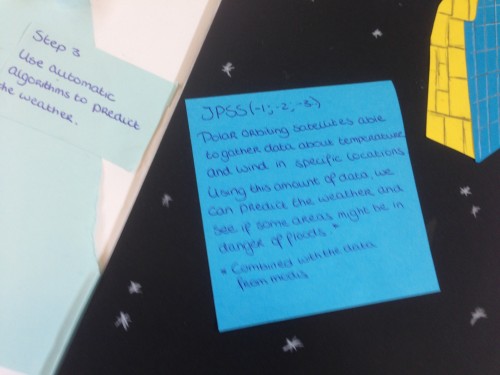 Step 3
Use automatic
algorithms to predict
the weather.
JPSS(-1; -2; -3)
Polar orbiting satellites able
to gather data about temperature
and wind in specific locations.
Using this amount of data, we
can predict the weather and
see if some areas might be in
danger of floods. *
* Combined with the data
from modis